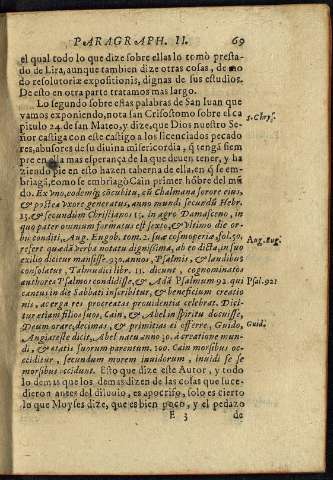 PARAGRAPH. II. 69
el qual todo lo que dize sobre ellas lo tomò presta-
do de Lira, aunque tambien dize otras cosas, de modo
resolutoriæ expositionis, dignas de sus estudios.
De esto en otra parte tratamos mas largo.
Lo segundo sobre estas palabras de San Iuan que
vamos exponiendo, nota san Crisostomo sobre el ca
pitulo 24. de san Mateo, y dize, que Dios nuestro Se-
ñor castiga con este castigo a los licenciados pecado
res, abusores de su diuina misericordia, q̃ tengã siem
pre en ella mas esperança de la que deuen tener, y ha
ziendo pie en esto hazen taberna de ella, en q̃ se em-
briagã, como se embriagò Cain primer hõbre del mũ
do. Ex vno, eodemq; cõcubitu, cũ Chalmana sorore eius,
& postea vxore generatus, anno mundi secundũ Hebr.
15. & secundum Christianos 15. in agro Damasceno, in
quo pater omnium formatus est sexto, & vltimo die or-
bis conditi, Aug. Eugob. tom. 2. suæ cosmopeiæ, fol. 51.
refert quædã verba notatu dignissima, ab eo dicta, in suo
exilio dicitur mansisse 930. annos, Psalmis, & laudibus
consolatus, Talmudici libr. 11. dicunt, cognominatos
authores Psalmos condidisse, & Adã Psalmum 92. qui
canticus in die Sabbati inscribitur, & beneficium creatio
nis, ac erga res procreatas prouidentia celebrat. Dici-
tur etiam filios suos, Cain, & Abel in spiritu docuisse,
Deum orare, decimas, & primitias ei offerre, Guido,
Angiareste dicit, Abel natu anno 30. à creatione mun-
di, & ætatis suorum parentum 300. Cain morsibus oc-
ciditur, secundum morem inuidorum, inuidi se se
morsibus occidunt. Esto que dize este Autor, y todo
lo demas que los demas dizen de las cosas que suce-
dieron antes del diluuio, es apocrifo, solo es cierto
lo que Moyses dize, que es bien poco, y el pedazo
E 3 de
S. Chrys.
Aug. Eug.
Psal. 92.
Guid.